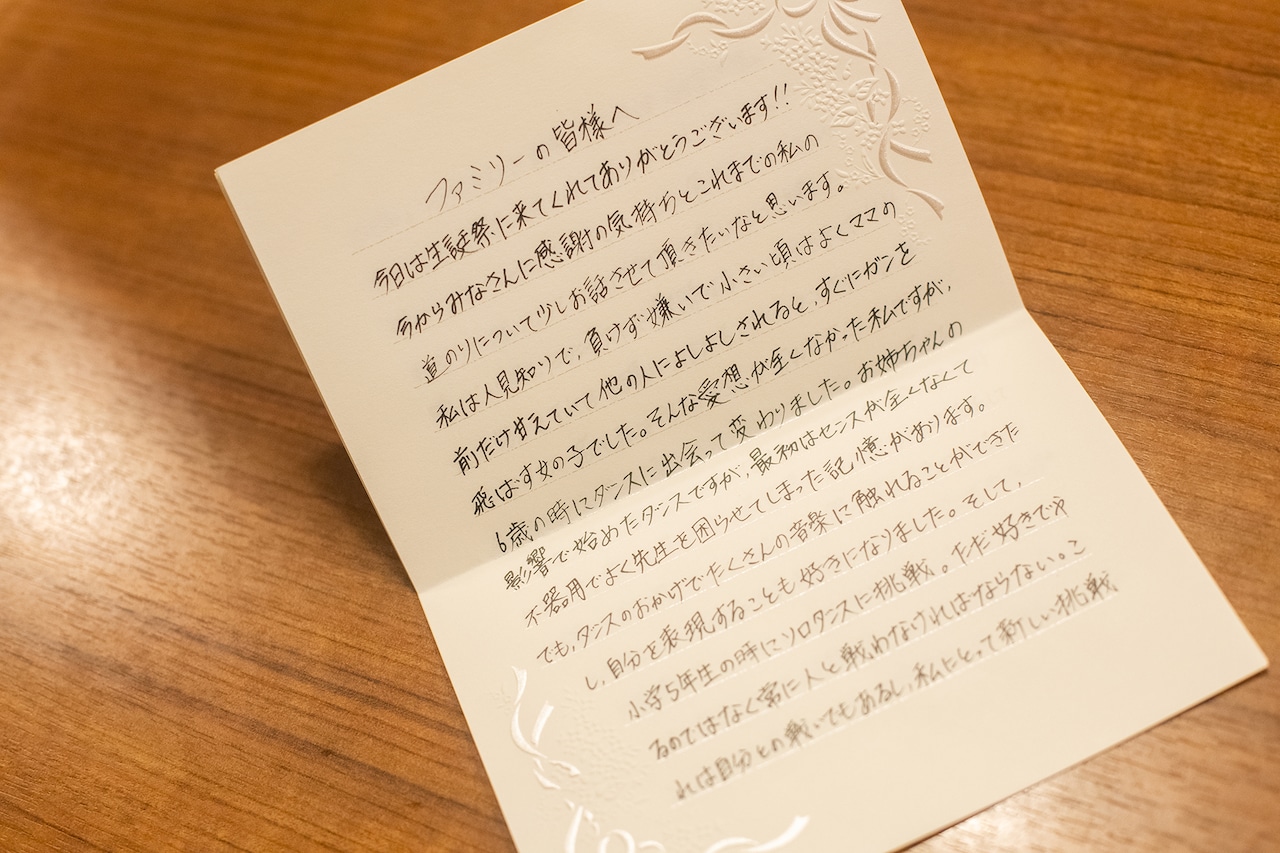 ファミリーの皆様へ
今日は生誕祭に来てくれてありがとうございます!!
今からみなさんに感謝の気持ちとこれまでの私の
道のりについて少しお話させて頂きたいなと思います。
私は人見知りで、負けず嫌いで小さい頃はよくママの
前だけ甘えていて他の人によしよしされると、すぐにガンを
飛ばす女の子でした。そんな愛想が全くなかった私ですが、
6歳の時にダンスに出会って変わりました。お姉ちゃんの
影響で始めたダンスですが、最初はセンスが全くなくて
不器用でよく先生を困らせてしまった記憶があります。
でも、ダンスのおかげでたくさんの音楽に触れることができた
し、自分を表現することも好きになりました。そして、
小学5年生の時にソロダンスに挑戦。ただ好きでや
るのではなく常に人と戦わなければならない。こ
れは自分との戦いでもあるし、私にとって新しい挑戦